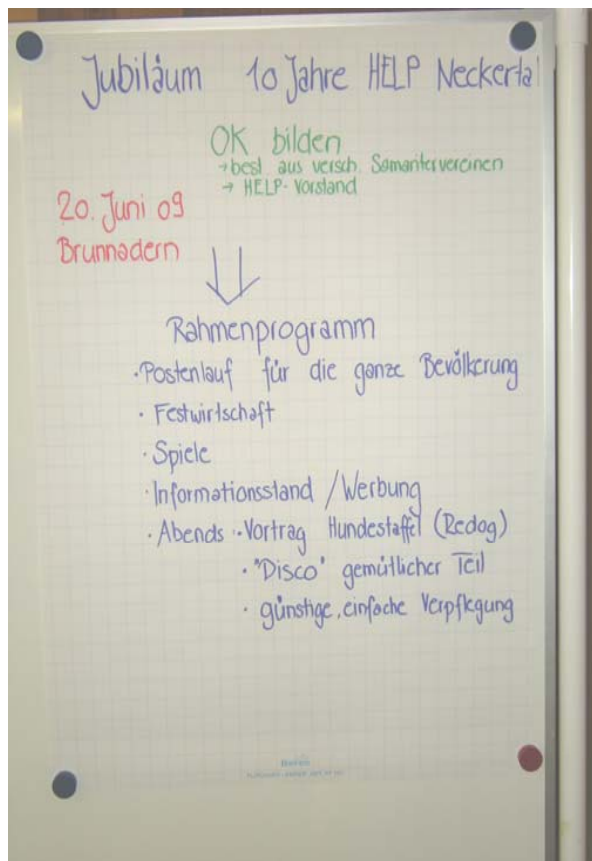 Jubiläum 10 Jahre HELP Neckertal
OK bilden
→ best. aus versch. Samaritervereinen
→ HELP-Vorstand
20. Juni 09
Brunnadern
Rahmenprogramm
· Postenlauf für die ganze Bevölkerung
· Festwirtschaft
· Spiele
· Informationsstand / Werbung
· Abends · Vortrag Hundestaffel (Redog)
· "Disco" gemütlicher Teil
· günstige, einfache Verpflegung